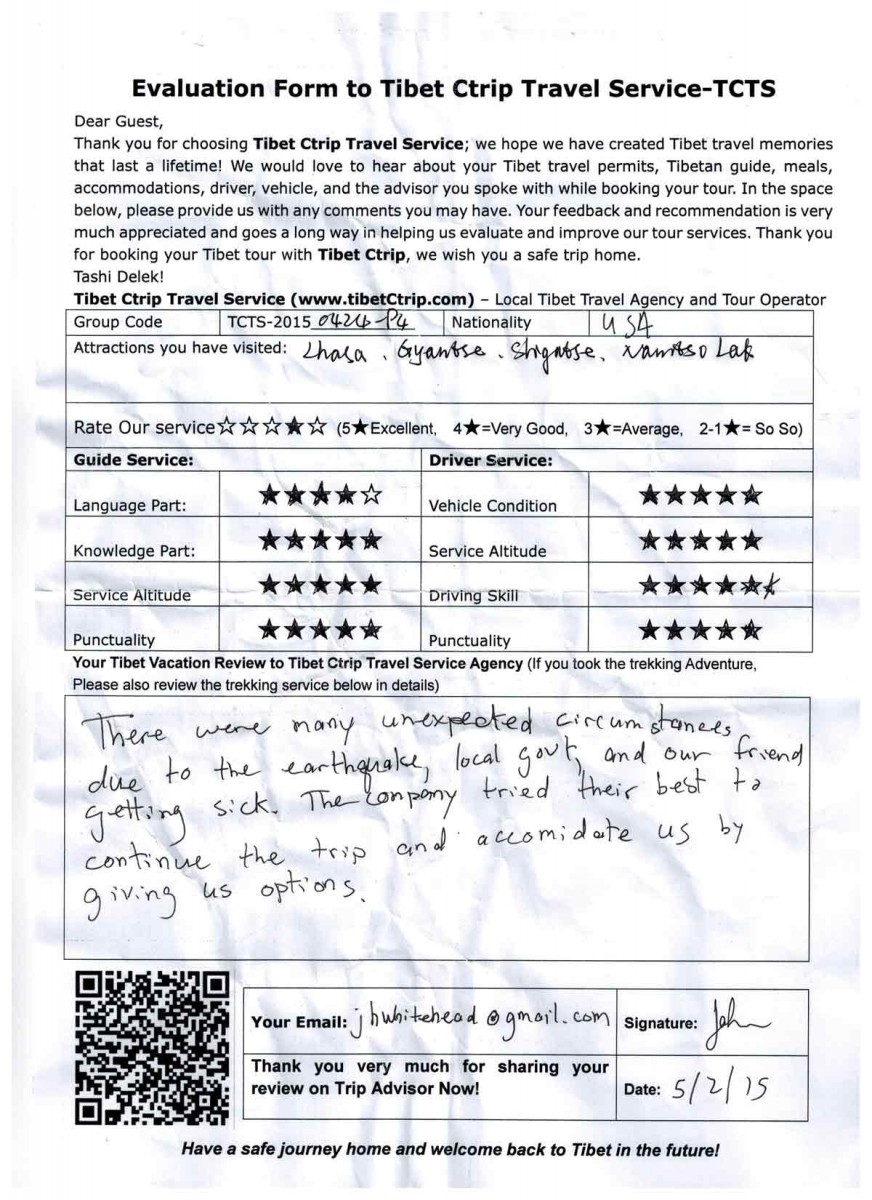 Evaluation Form to Tibet Ctrip Travel Service-TCTS
Dear Guest,
Thank you for choosing Tibet Ctrip Travel Service; we hope we have created Tibet travel memories
that last a lifetime! We would love to hear about your Tibet travel permits, Tibetan guide, meals,
accommodations, driver, vehicle, and the advisor you spoke with while booking your tour. In the space
below, please provide us with any comments you may have. Your feedback and recommendation is very
much appreciated and goes a long way in helping us evaluate and improve our tour services. Thank you
for booking your Tibet tour with Tibet Ctrip, we wish you a safe trip home.
Tashi Delek!
Tibet Ctrip Travel Service (www.tibetCtrip.com) – Local Tibet Travel Agency and Tour Operator
Group Code TCTS-2015 0424-P4 Nationality USA
Attractions you have visited: Lhasa, Gyantse, Shigatse, Namtso Lak
Rate Our service☆☆☆★☆ (5★Excellent, 4★=Very Good, 3★=Average, 2-1★= So So)
Guide Service: Driver Service:
Language Part: ★★★★☆ Vehicle Condition ★★★★★
Knowledge Part: ★★★★★ Service Altitude ★★★★★
Service Altitude ★★★★★ Driving Skill ★★★★★★
Punctuality ★★★★★ Punctuality ★★★★★
Your Tibet Vacation Review to Tibet Ctrip Travel Service Agency (If you took the trekking Adventure,
Please also review the trekking service below in details)
There were many unexpected circumstances
due to the earthquake, local govt, and our friend
getting sick. The company tried their best to
continue the trip and accomidate us by
giving us options.
Your Email: jhwhitehead@gmail.com Signature: John
Thank you very much for sharing your
review on Trip Advisor Now! Date: 5/2/15
Have a safe journey home and welcome back to Tibet in the future!